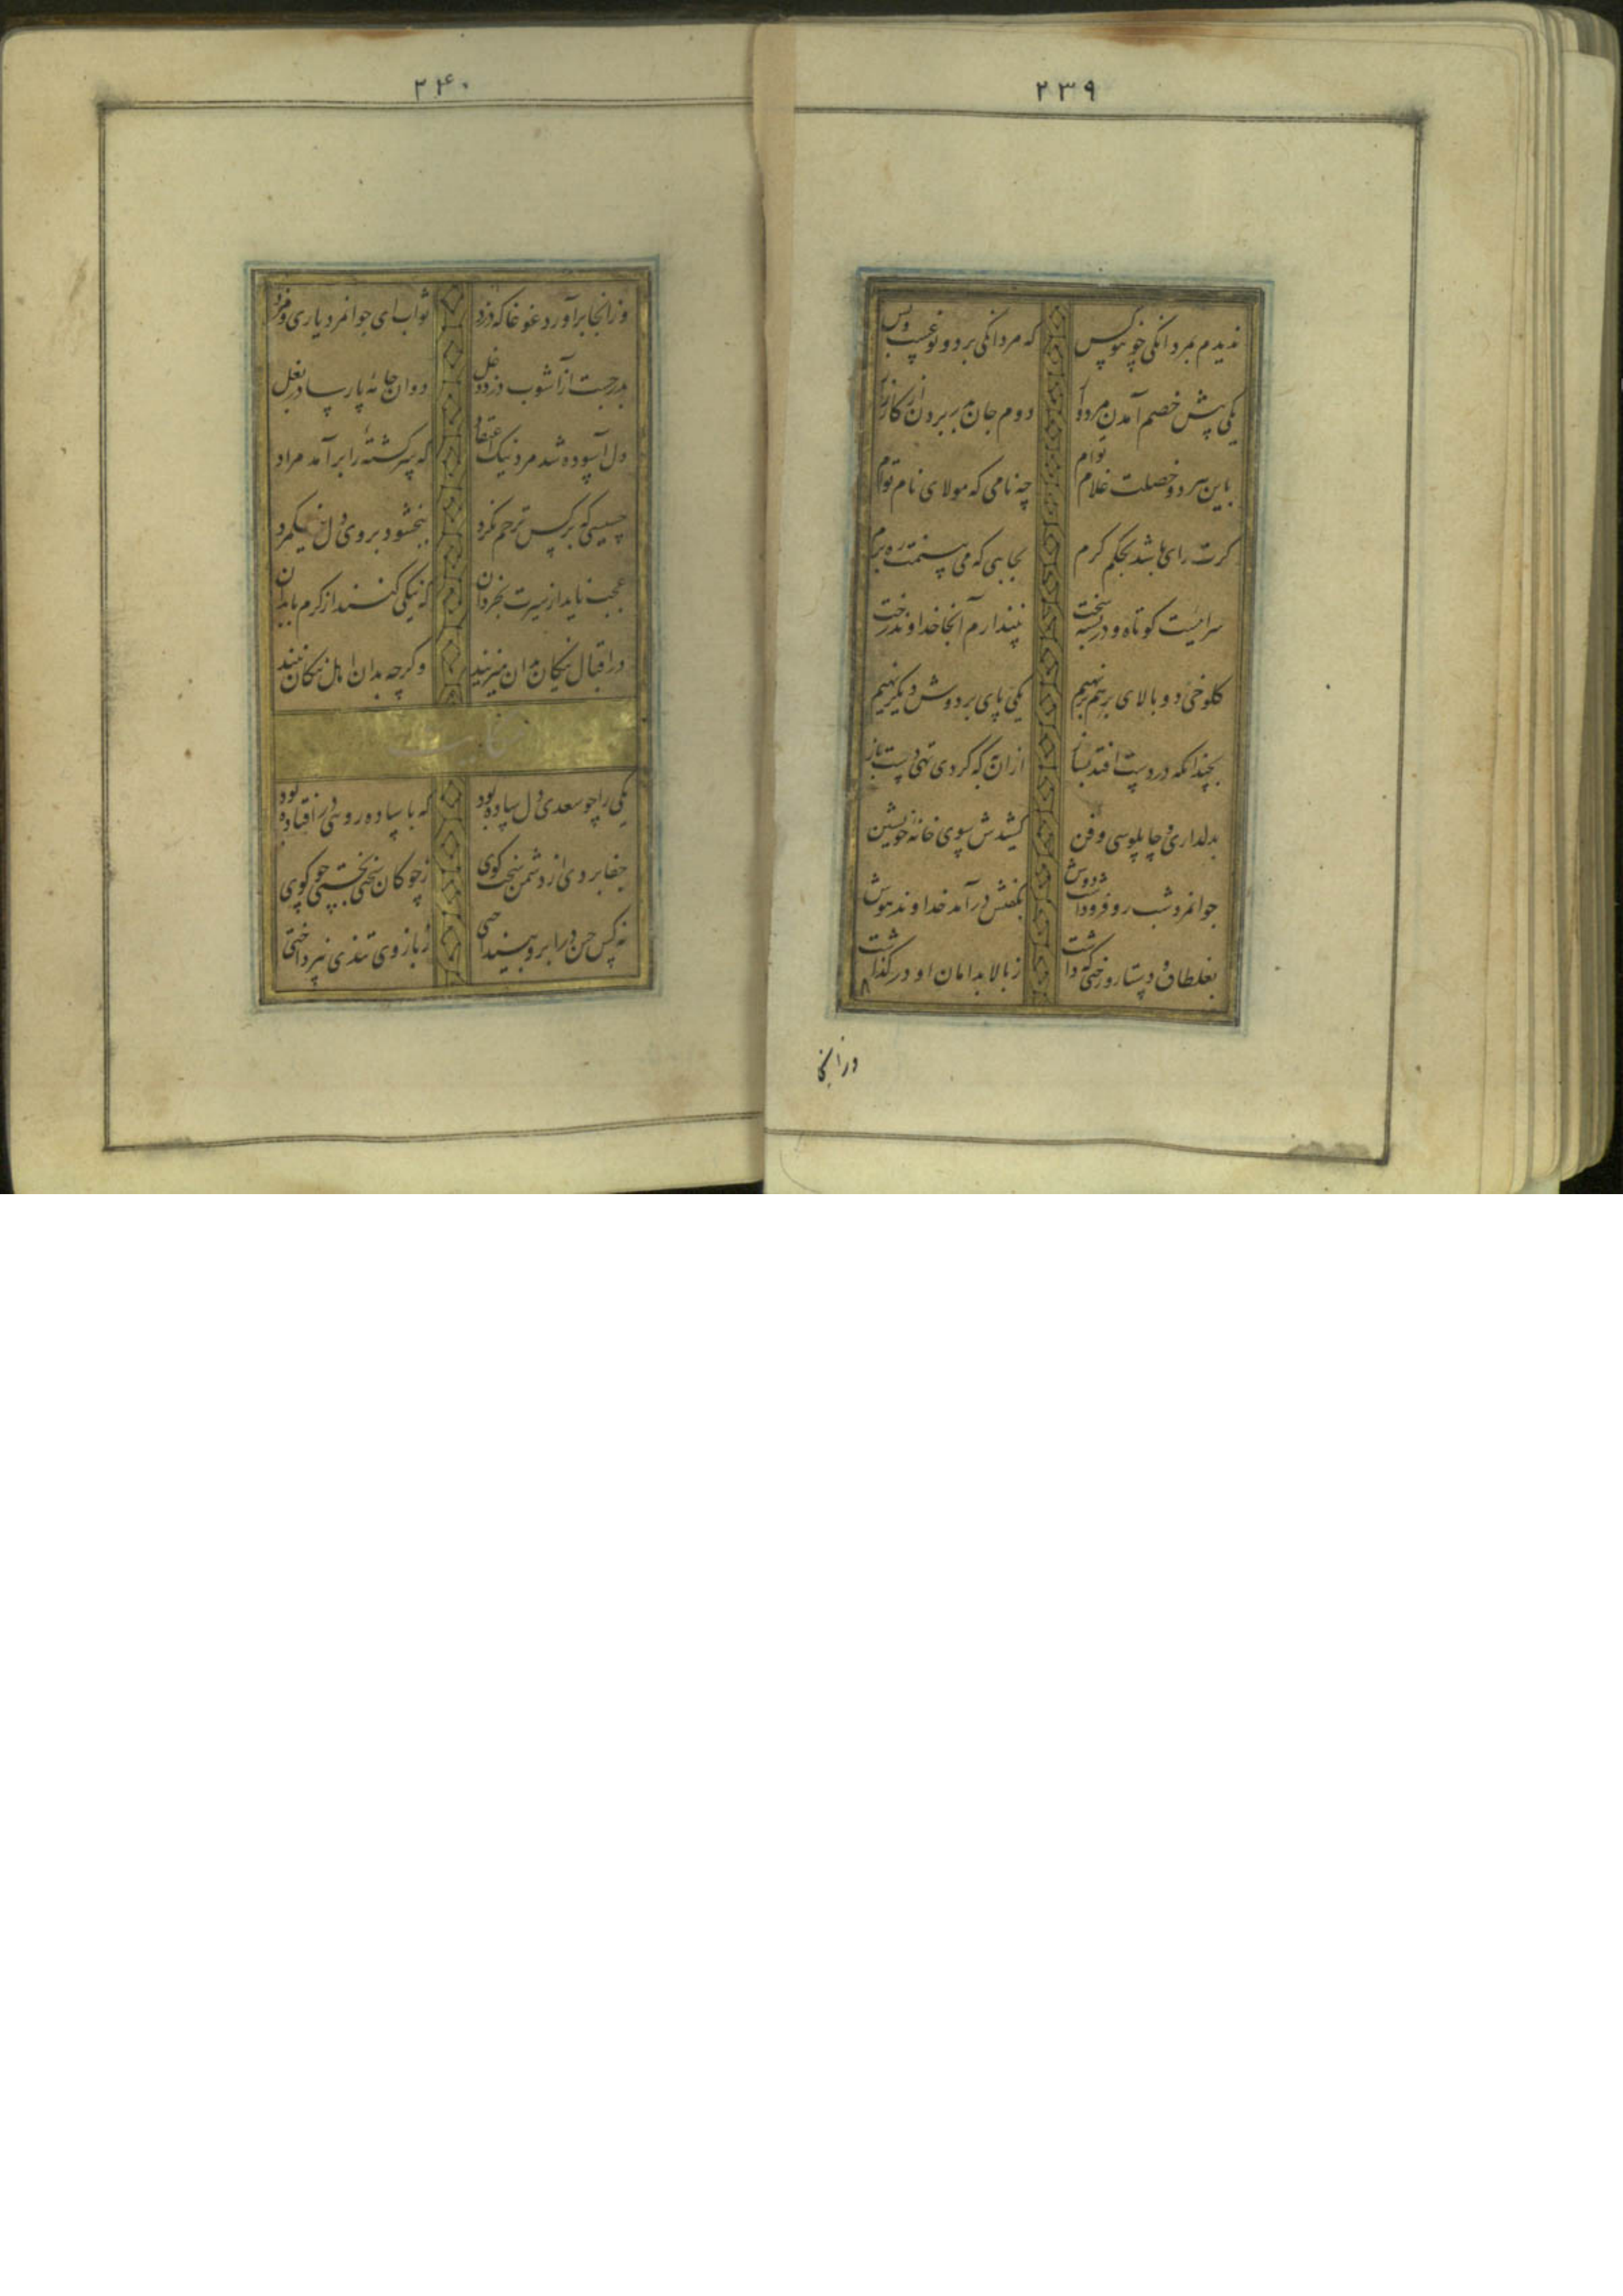 ۲۳۹
ندیدم بمردانگی چو تو کس که مردانگی بر دو نوعست و بس
یکی پیش خصم آمدن مردوار دوم جان بدر بردن از کارزار
باین هر دو خصلت غلام توام چه نامی که مولای نام توام
کرت رای باشد بحکم کرم بجایی که می بینمت ره برم
سراییست کوتاه و در بسته سخت نپندارم آنجا خداوند رخت
کلوخی دو بالای برهم نهیم یکی پای بر دوش دیگر نهیم
بچندانکه در دستت افتد بساز ازان به که گردی تهی دست باز
بدلداری و چاپلوسی و فن کشیدش سوی خانه خویشتن
جوانمرد شبرو فرو داشت دوش بکفتش درآمد خداوند هوش
بغلطاق و دستار و رختی که داشت ز بالا بدامان او در گذاشت
۸
وزانجا
۲۴۰
وزانجا برآورد غوغا که دزد ثواب ای جوانمرد یاری و مزد
بدر جست از آشوب دزد دغل دوان جامه پارسا در بغل
دل آسوده شد مرد نیک اعتقاد که سرکشته را برآمد مراد
خبیثی که بر کس ترحم نکرد ببخشود بر وی دل نیکمرد
عجب ناید از سیرت بخردان که نیکی کنند از کرم با بدان
در اقبال نیکان بدان میزیند وگرچه بدان اهل نیکان نیند
حکایت
یکی را چو سعدی دل ساده بود که با ساده رویی در افتاده بود
جفا بردی از دشمن سخت کوی ز چوکان سختی بخستی چو کوی
نه کس چین در ابرو بینداختی ز بازوی تندی نپرداختی